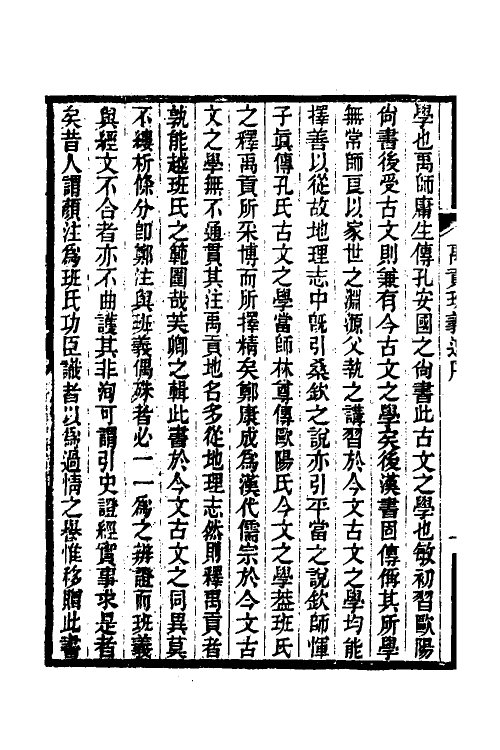 學也禹師庸生傳孔安國之尙書此古文之學也敏初習歐陽
尙書後受古文則兼有今古文之學矣後漢書固傳稱其所學
無常師亘以家世之淵源父執之講習於今文古文之學均能
擇善以從故地理志中旣引桑欽之說亦引平當之說欽師惲
子眞傳孔氏古文之學當師林尊傳歐陽氏今文之學葢班氏
之釋禹貢所采博而所擇精矣鄭康成爲漢代儒宗於今文古
文之學無不通貫其注禹貢地名多從地理志然則釋禹貢者
孰能越班氏之範圍哉芙卿之輯此書於今文古文之同異莫
不縷析條分卽鄭注與班義偶殊者必一一爲之辨證而班義
與經文不合者亦不曲護其非洵可謂引史證經實事求是者
矣昔人謂顏注爲班氏功臣識者以爲過情之譽惟移贈此書
禹貢班義述序